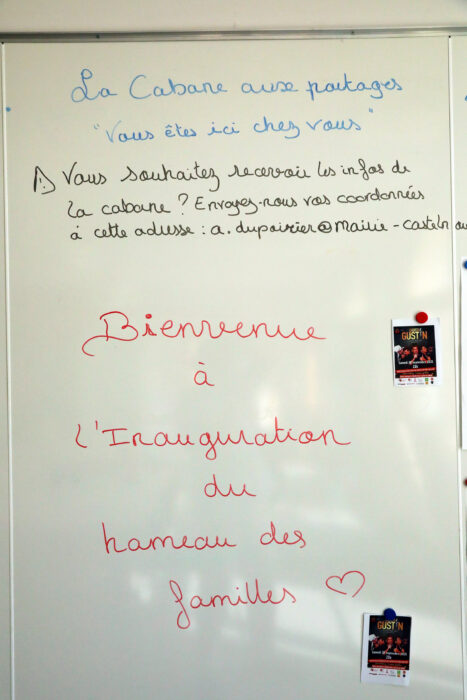 La Cabane aux partages
"Vous êtes ici chez vous"
⚠ Vous souhaitez recevoir les infos de
la cabane ? Envoyez-nous vos coordonnées
à cette adresse : a.dupoirier@mairie-casteln
Bienvenue
à
l'Inauguration
du
hameau des
familles ♡
GUST'N
GUST'N